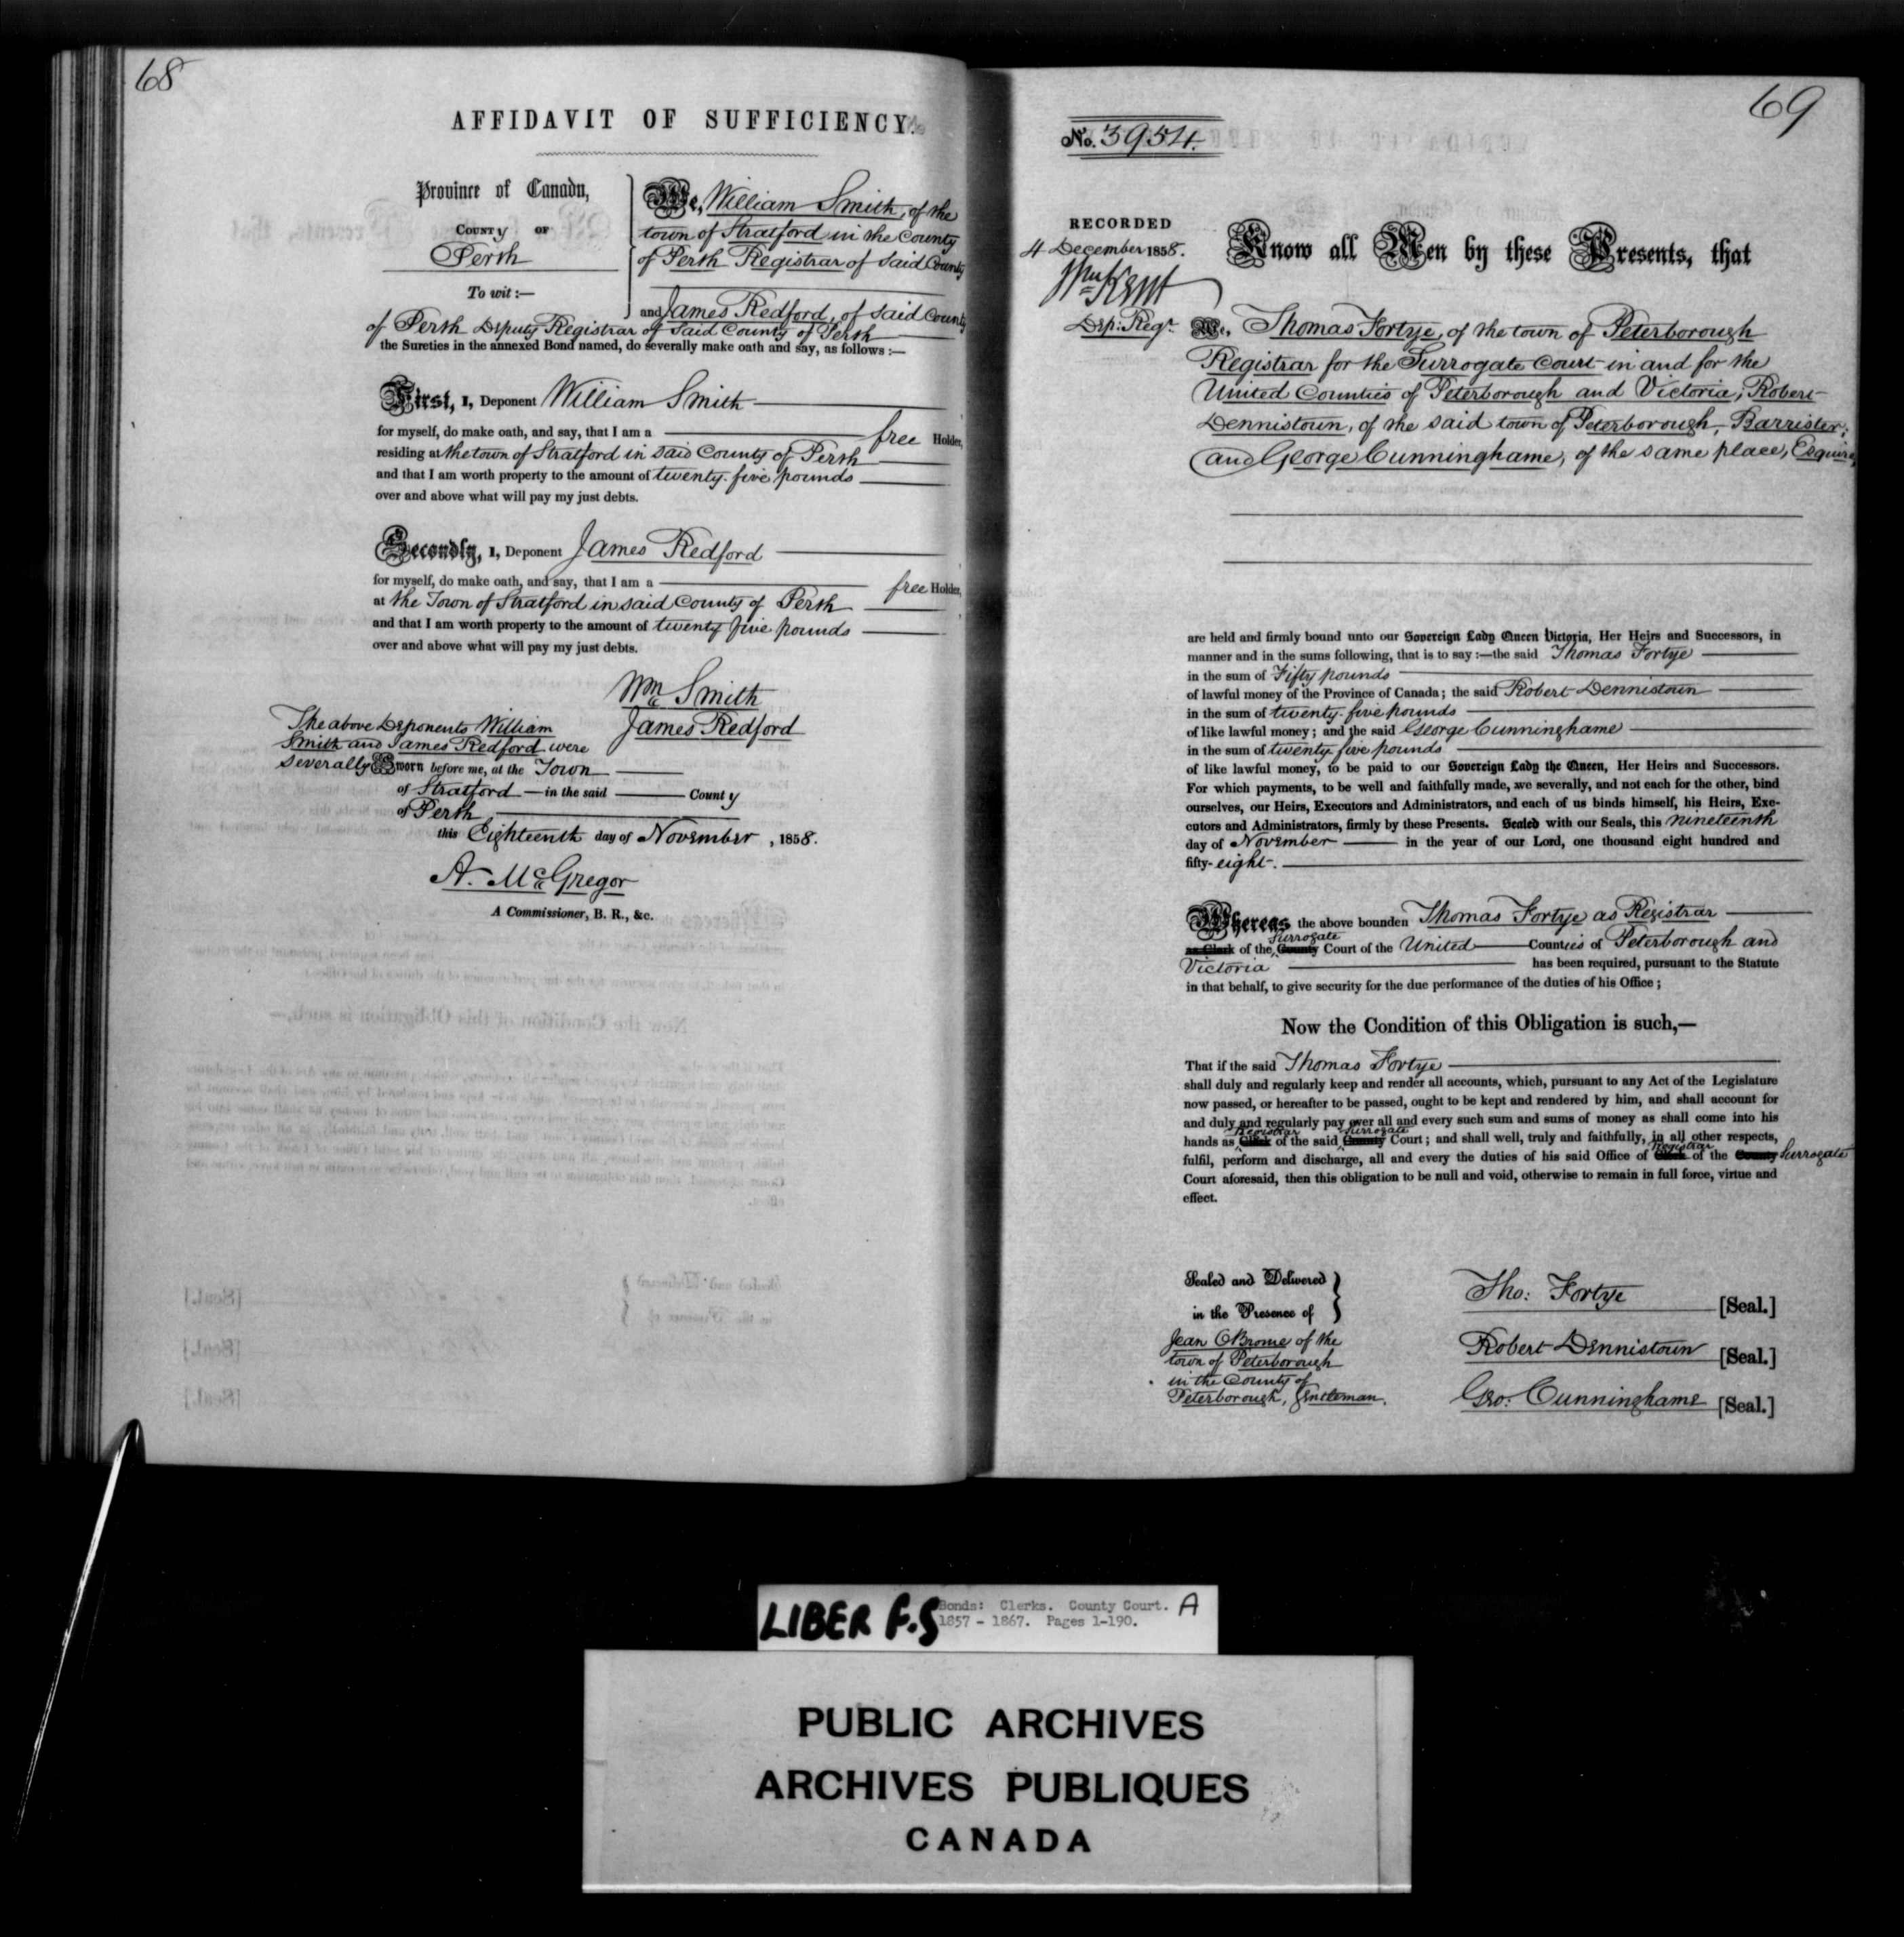 68
AFFIDAVIT OF SUFFICIENCY.
Province of Canada,
County of
Perth
To wit:—
We, William Smith, of the
town of Stratford in the County
of Perth Registrar of said County
and James Redford, of said County
of Perth Deputy Registrar of said County of Perth
the Sureties in the annexed Bond named, do severally make oath and say, as follows:—
First, I, Deponent William Smith
for myself, do make oath, and say, that I am a free Holder,
residing at the town of Stratford in said County of Perth
and that I am worth property to the amount of twenty-five pounds
over and above what will pay my just debts.
Secondly, I, Deponent James Redford
for myself, do make oath, and say, that I am a free Holder,
at the Town of Stratford in said County of Perth
and that I am worth property to the amount of twenty five pounds
over and above what will pay my just debts.
Wm Smith
James Redford
The above Deponents William
Smith and James Redford were
severally Sworn before me, at the Town
of Stratford — in the said County
of Perth
this Eighteenth day of November, 1858.
A. McGregor
A Commissioner, B. R., &c.
69
No. 3954.
RECORDED
4 December 1858.
Wm Kent
Dep: Regr.
Know all Men by these Presents, that
We, Thomas Fortye, of the town of Peterborough
Registrar for the Surrogate Court in and for the
United Counties of Peterborough and Victoria; Robert
Dennistown, of the said town of Peterborough, Barrister;
and George Cunninghame, of the same place, Esquire,
are held and firmly bound unto our Sovereign Lady Queen Victoria, Her Heirs and Successors, in
manner and in the sums following, that is to say:—the said Thomas Fortye
in the sum of Fifty pounds
of lawful money of the Province of Canada; the said Robert Dennistown
in the sum of twenty-five pounds
of like lawful money; and the said George Cunninghame
in the sum of twenty five pounds
of like lawful money, to be paid to our Sovereign Lady the Queen, Her Heirs and Successors.
For which payments, to be well and faithfully made, we severally, and not each for the other, bind
ourselves, our Heirs, Executors and Administrators, and each of us binds himself, his Heirs, Exe-
cutors and Administrators, firmly by these Presents. Sealed with our Seals, this nineteenth
day of November in the year of our Lord, one thousand eight hundred and
fifty-eight.
Whereas the above bounden Thomas Fortye as Registrar
as Clerk of the County Surrogate Court of the United Counties of Peterborough and
Victoria has been required, pursuant to the Statute
in that behalf, to give security for the due performance of the duties of his Office;
Now the Condition of this Obligation is such,—
That if the said Thomas Fortye
shall duly and regularly keep and render all accounts, which, pursuant to any Act of the Legislature
now passed, or hereafter to be passed, ought to be kept and rendered by him, and shall account for
and duly and regularly pay over all and every such sum and sums of money as shall come into his
hands as Clerk Registrar of the said County Surrogate Court; and shall well, truly and faithfully, in all other respects,
fulfil, perform and discharge, all and every the duties of his said Office of Clerk Registrar of the County Surrogate
Court aforesaid, then this obligation to be null and void, otherwise to remain in full force, virtue and
effect.
Sealed and Delivered
in the Presence of
Jean C Brome of the
town of Peterborough
in the County of
Peterborough, Gentleman.
Tho: Fortye [Seal.]
Robert Dennistown [Seal.]
Geo: Cunninghame [Seal.]
LIBER F.S
Bonds: Clerks. County Court. A
1857 - 1867. Pages 1-190.
PUBLIC ARCHIVES
ARCHIVES PUBLIQUES
CANADA